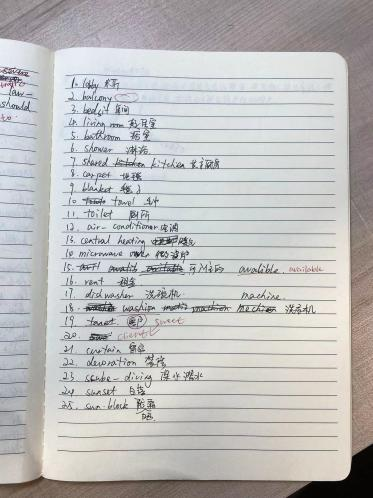 law-
should
1. lobby 大厅
2. balcony
3. bedsit 房间
4. living room 起居室
5. bathroom 浴室
6. shower 淋浴
7. shared kitchen kitchen 共享厨房
8. carpet 地毯
9. blanket 毯子
10. towel 毛巾
11. toilet 厕所
12. air-conditioner 空调
13. central heating 中央暖气
14. microwave oven 微波炉
15. avalible. available
16. rent 租金
17. dishwasher 洗碗机 machine.
18. washing machine 洗衣机
19. 客户 sweet
20. client
21. curtain 窗帘
22. decoration 装修
23. scube-diving 深水潜水
24. sunset 日落
25. sun-block 防晒